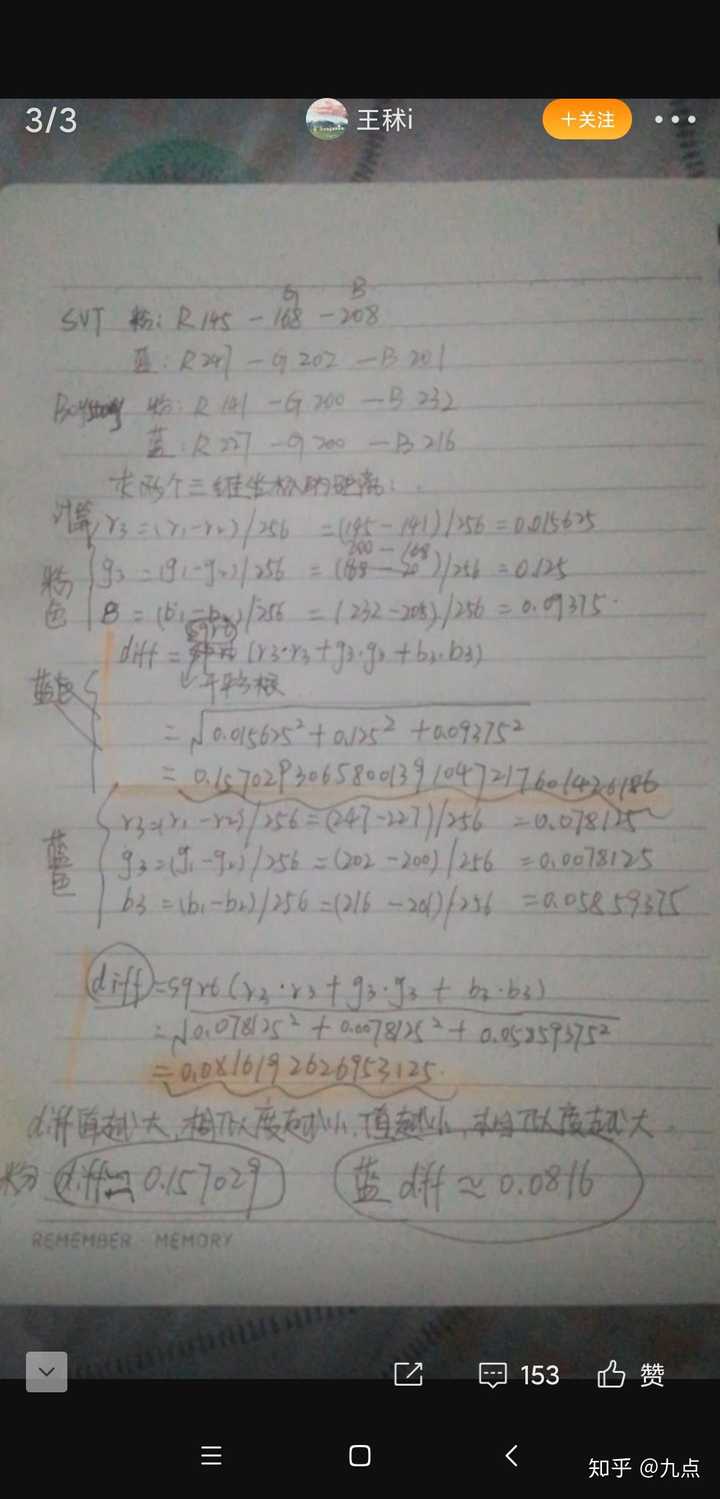 3/3
王秝i
+关注
G B
SVT 粉: R 145 - 168 - 208
蓝: R 247 - G 202 - B 201
粉: R 141 - G 200 - B 232
蓝: R 227 - G 200 - B 216
求两个三维坐标的距离:
计算 r3 = (r1-r2)/256 = (145-141)/256 = 0.015625
200-168
粉色 g3 = (g1-g2)/256 = ( )/256 = 0.125
B = (b1-b2)/256 = (232-208)/256 = 0.09375.
sqrt
diff = (r3·r3+g3·g3+b3·b3)
开平方根
= √0.015625²+0.125²+0.09375²
= 0.15702930658001391047217601426186
r3=(r1-r2)/256=(247-227)/256 =0.078125
蓝色 g3=(g1-g2)/256=(202-200)/256 =0.0078125
b3=(b1-b2)/256=(216-201)/256 =0.05859375
diff=sqrt(r3·r3+g3·g3+b3·b3)
=√0.078125²+0.0078125²+0.05859375²
=0.0816192626953125.
diff值越大,相似度越小,值越小,相似度越大.
粉 diff≈0.157029 蓝 diff≈0.0816
REMEMBER MEMORY
153 赞
知乎 @九点